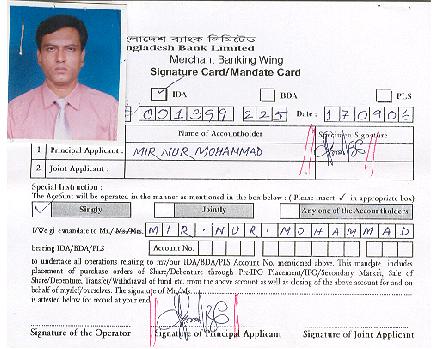 লাদেশ ব্যাংক লিমিটেড
ngladesh Bank Limited
Merchant Banking Wing
Signature Card/Mandate Card
✓ IDA BDA PLS
001399 225 Date : 170906
Name of Accountholder Specimen Signature
1 Principal Applicant : MIR NUR MOHAMMAD
2 Joint Applicant :
Special Instruction :
The Account will be operated in the manner as mentioned in the box below : (Please insert ✓ in appropriate box)
✓ Singly Jointly Any one of the Accountholders
I/We give mandate to Mr./Ms./Mrs. MIR NUR MOHAMMAD
bearing IDA/BDA/PLS Account No.
to undertake all operations relating to my/our IDA/BDA/PLS Account No. mentioned above. This mandate includes
placement of purchase orders of Share/Debenture through Pre-IPO Placement/IPO/Secondary Market, Sale of
Share/Debenture, Transfer/Withdrawal of fund etc. from the above account as well as closing of the above account for and on
behalf of myself/ourselves. The signature of Mr./Ms.
is attested below for record at your end.
Signature of the Operator Signature of Principal Applicant Signature of Joint Applicant